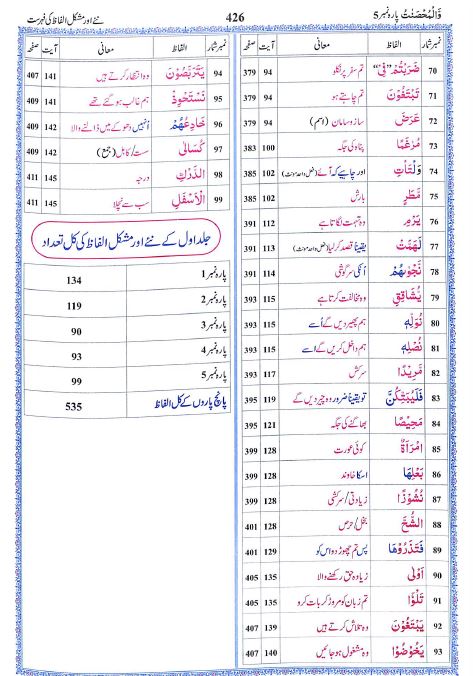 وَالْمُحْصَنٰتُ پارہ نمبر 5
426
نئے اور مشکل الفاظ کی فہرست
نمبر شمار الفاظ معانی آیت نمبر صفحہ
70 ضَرَبْتُمْ "فِیْ" تم سفر پر نکلو 94 379
71 تَبْتَغُوْنَ تم چاہتے ہو 94 379
72 عَرَضَ سازوسامان (اسم) 94 379
73 مُرٰغَمًا پناہ کی جگہ 100 383
74 وَلْتَاْتِ اور چاہیے کہ آئے 102 385
75 مَّطَرٍ بارش 102 385
76 یَرْمِ وہ تہمت لگاتا ہے 112 391
77 لَهَمَّتْ یقیناً قصد کر لیا 113 391
78 نَجْوٰىهُمْ انکی سرگوشی 114 391
79 یُّشَاقِقِ وہ مخالفت کرتا ہے 115 393
80 نُوَلِّهٖ ہم پھیر دیں گے اُسے 115 393
81 نُصْلِهٖ ہم داخل کریں گے اُسے 115 393
82 مَرِیْدًا سرکش 117 393
83 فَلَیُبَتِّكُنَّ تو یقیناً ضرور وہ چیر دیں گے 119 395
84 مَحِیْصًا بھاگنے کی جگہ 121 395
85 امْرَاَةٌ کوئی عورت 128 399
86 بَعْلِهَا اسکا خاوند 128 399
87 نُشُوْزًا زیادتی/سرکشی 128 399
88 الشُّحَّ بخل/حرص 128 401
89 فَتَذَرُوْهَا پس تم چھوڑ دو اس کو 129 401
90 اَوْلٰی زیادہ حق رکھنے والا 135 405
91 تَلْوٗۤا تم زبان کو مروڑ کر بات کرو 135 405
92 یَبْتَغُوْنَ وہ تلاش کرتے ہیں 139 407
93 یَخُوْضُوْا وہ مشغول ہو جائیں 140 407
نمبر شمار الفاظ معانی آیت نمبر صفحہ
94 یَتَرَبَّصُوْنَ وہ انتظار کرتے ہیں 141 407
95 نَسْتَحْوِذْ ہم غالب ہو گئے تھے 141 407
96 خَادِعُهُمْ اُنہیں دھوکے میں ڈالنے والا 142 409
97 كُسَالٰی سست/کاہل (جمع) 142 409
98 الدَّرْكِ درجہ 145 411
99 الْاَسْفَلِ سب سے نچلا 145 411
جلد اول کے نئے اور مشکل الفاظ کی کل تعداد
پارہ نمبر 1 134
پارہ نمبر 2 119
پارہ نمبر 3 90
پارہ نمبر 4 93
پارہ نمبر 5 99
پانچ پاروں کے کل الفاظ 535